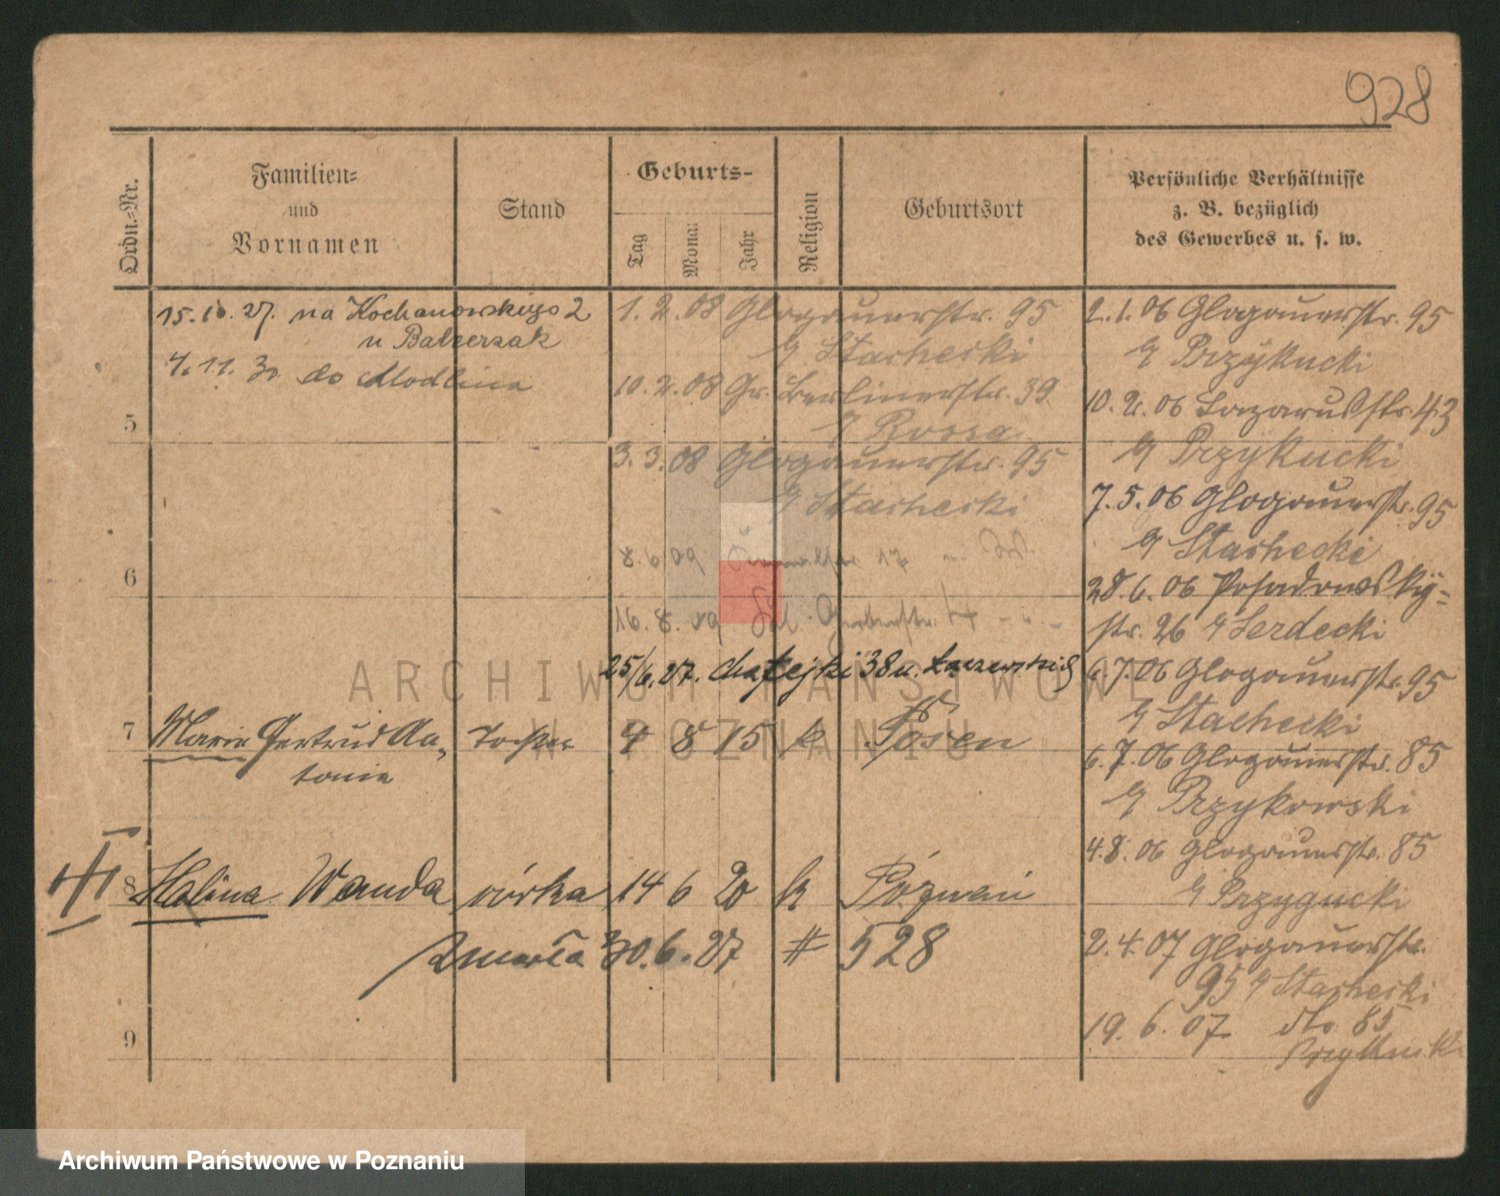 928
Ordn.-Nr.
Familien-
und
Vornamen
Stand
Geburts-
Tag
Mona:
Jahr
Religion
Geburtsort
Persönliche Verhältnisse
z. B. bezüglich
des Gewerbes u. s. w.
15.10.27. na Kochanowskiego 2
u Balcerzak
4.11.30 do Modlina
1.2.08 Glogauerstr. 95
Stachecki
10.2.08 Gr. Berlinerstr. 39
Rossa
3.3.08 Glogauerstr. 95
Stachecki
8.6.09 17
16.8.09 Gerberstr. 4
25/6.27. Matejki 38 u.
5
6
7 Marie Gertrud An-
tonie
Tochter 4 8 15 k Posen
8 Halina Wanda córka 14 6 20 k Poznań
zmarła 30.6.27 # 528
9
2.1.06 Glogauerstr. 95
Przykucki
10.2.06 Lazarusstr. 43
Przykucki
7.5.06 Glogauerstr. 95
Stachecki
28.6.06 Posadowsky-
str. 26 Serdecki
6.7.06 Glogauerstr. 95
Stachecki
6.7.06 Glogauerstr. 85
Przykowski
4.8.06 Glogauerstr. 85
Przygucki
2.4.07 Glogauerstr.
95 Stachecki
19.6.07 dto. 85
ARCHIWUM PAŃSTWOWE
W POZNANIU
Archiwum Państwowe w Poznaniu